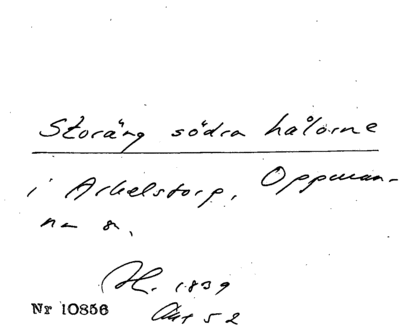 Storäng södra hålorne
i Arkelstorp, Oppman-
na sn.
H. 1839
Akt 52
Nr 10856